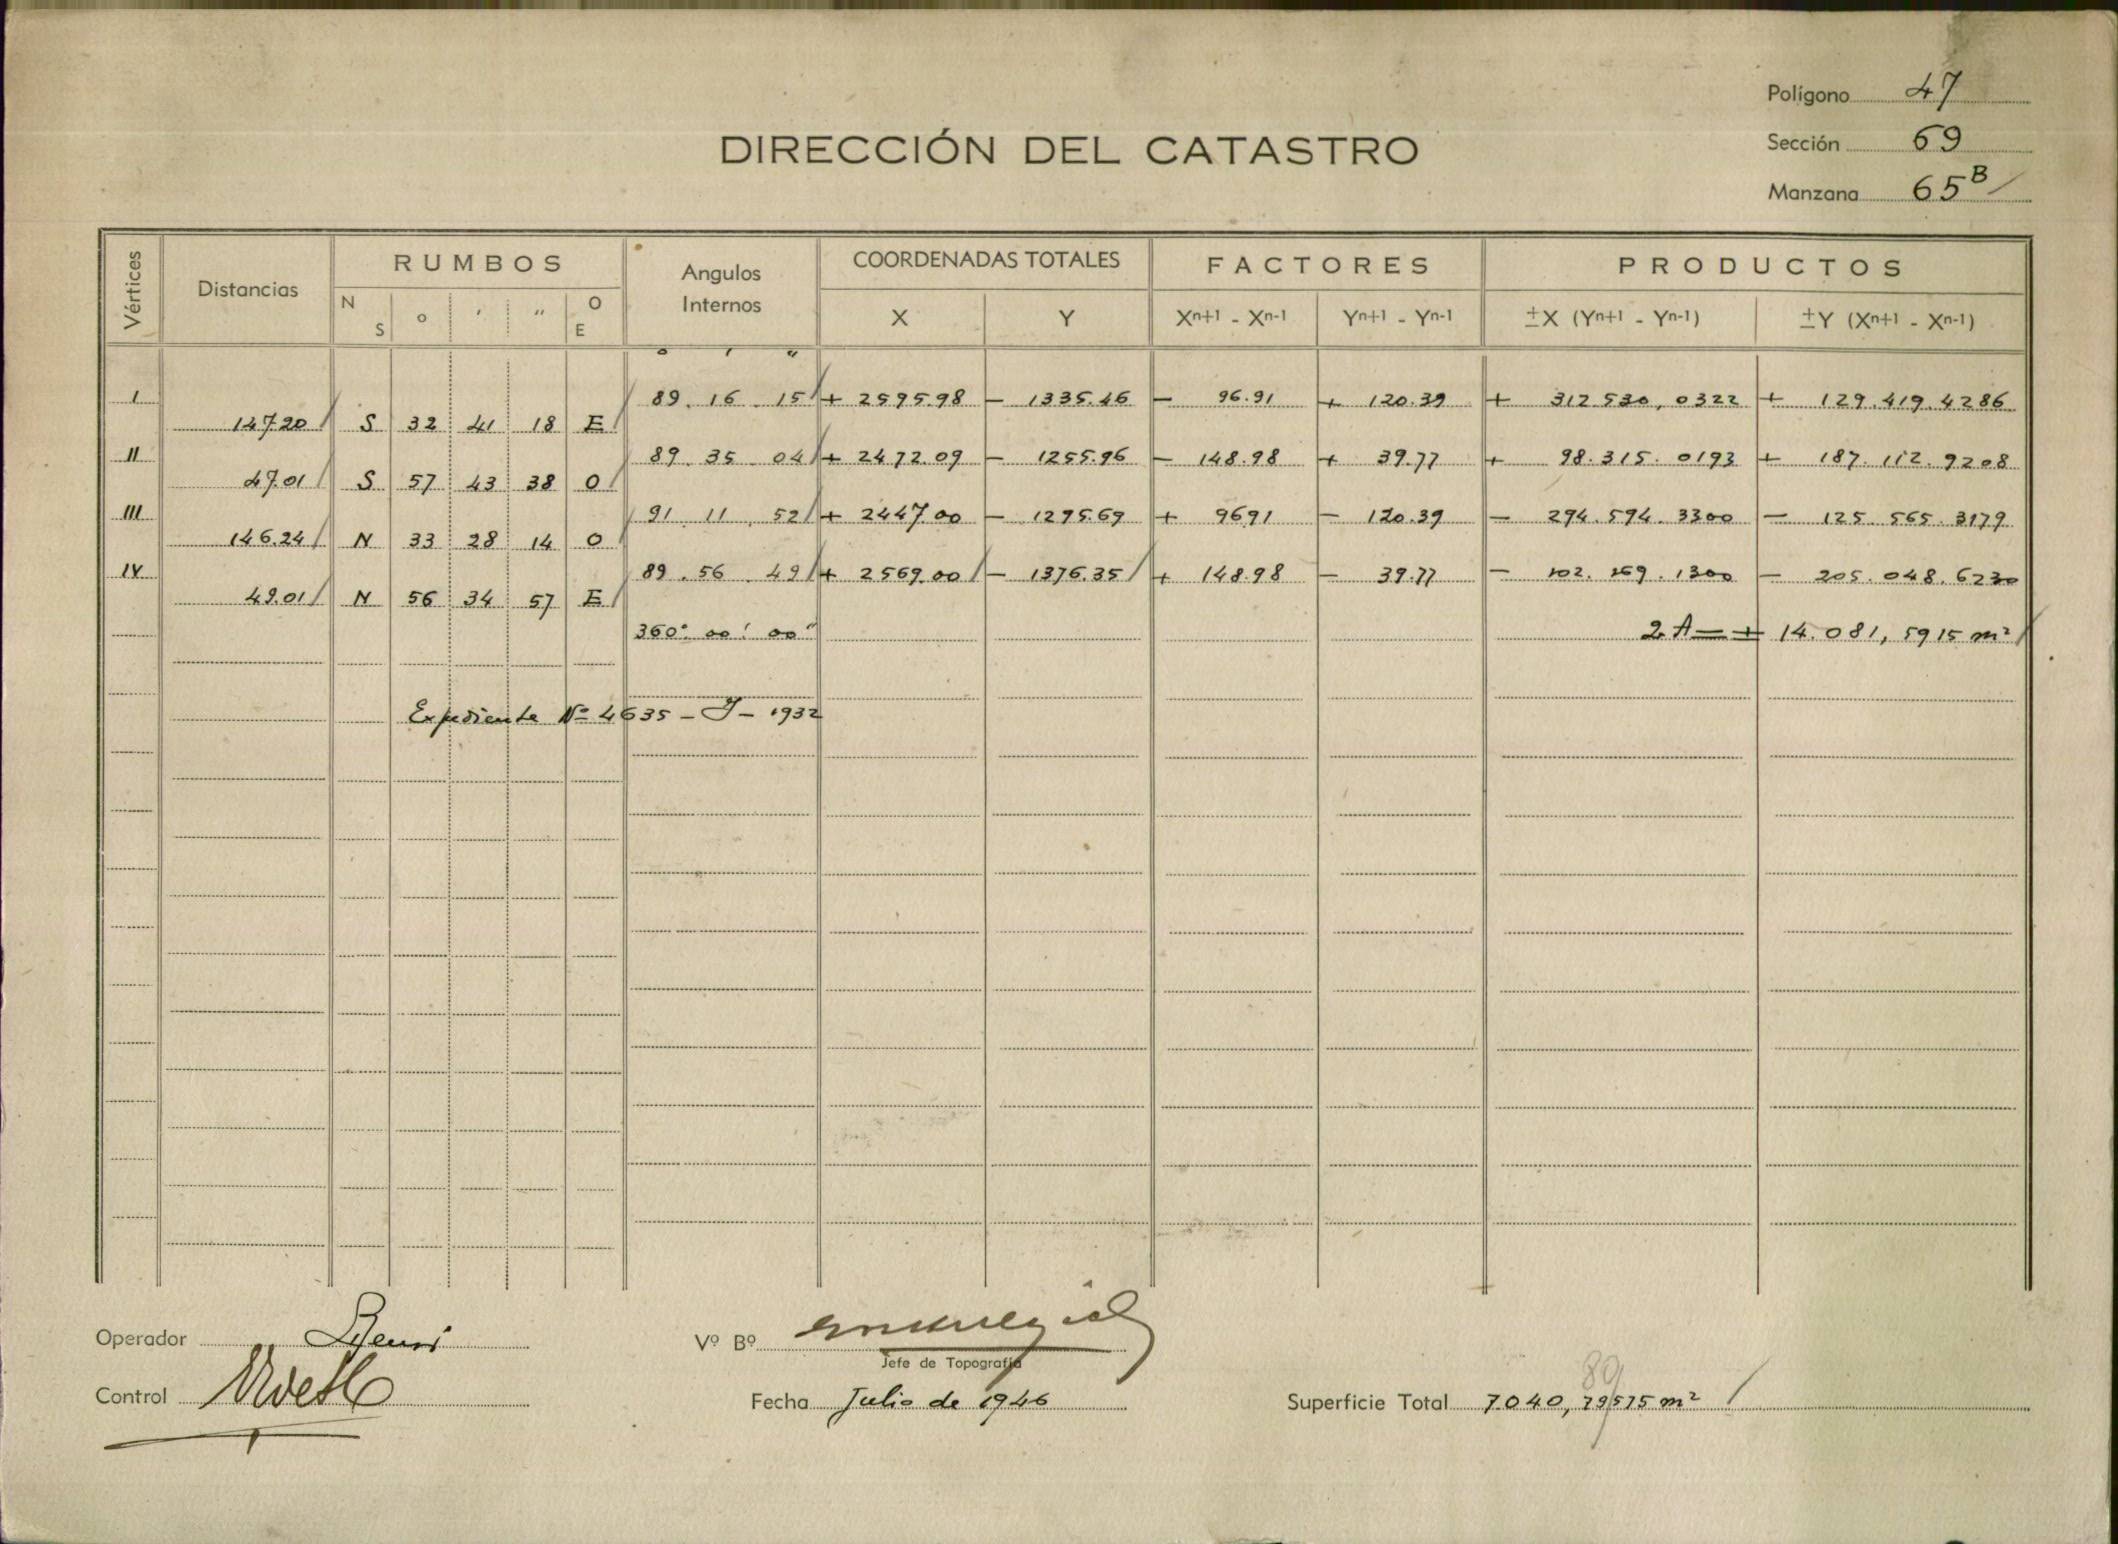 Polígono 47
Sección 69
Manzana 65 B
DIRECCIÓN DEL CATASTRO
Vértices Distancias RUMBOS Angulos Internos COORDENADAS TOTALES FACTORES PRODUCTOS
N S o ' " O E X Y Xn+1 - Xn-1 Yn+1 - Yn-1 ±X (Yn+1 - Yn-1) ±Y (Xn+1 - Xn-1)
o ' "
I 89. 16. 15 + 2595.98 — 1335.46 — 96.91 + 120.39 + 312 530, 0322 + 129.419.4286
147.20 S 32 41 18 E
II 89. 35 04 + 2472.09 — 1255.96 — 148.98 + 39.77 + 98.315. 0193 + 187. 112. 9208
47.01 S 57 43 38 O
III 91 11 52 + 2447 00 — 1295.69 + 96 91 — 120.39 — 294 594. 3300 — 125 565. 3179
146.24 N 33 28 14 O
IV 89. 56 49 + 2569.00 — 1376.35 + 148.98 — 39.77 — 102. 169. 1300 — 205. 048. 6230
49.01 N 56 34 57 E
360° 00' 00" 2 A = + 14.081, 5915 m²
Expediente Nº 4635 - J - 1932
Operador
Vº Bº
Jefe de Topografía
Control
Fecha Julio de 1946
Superficie Total 7.040, 79575 m²
80